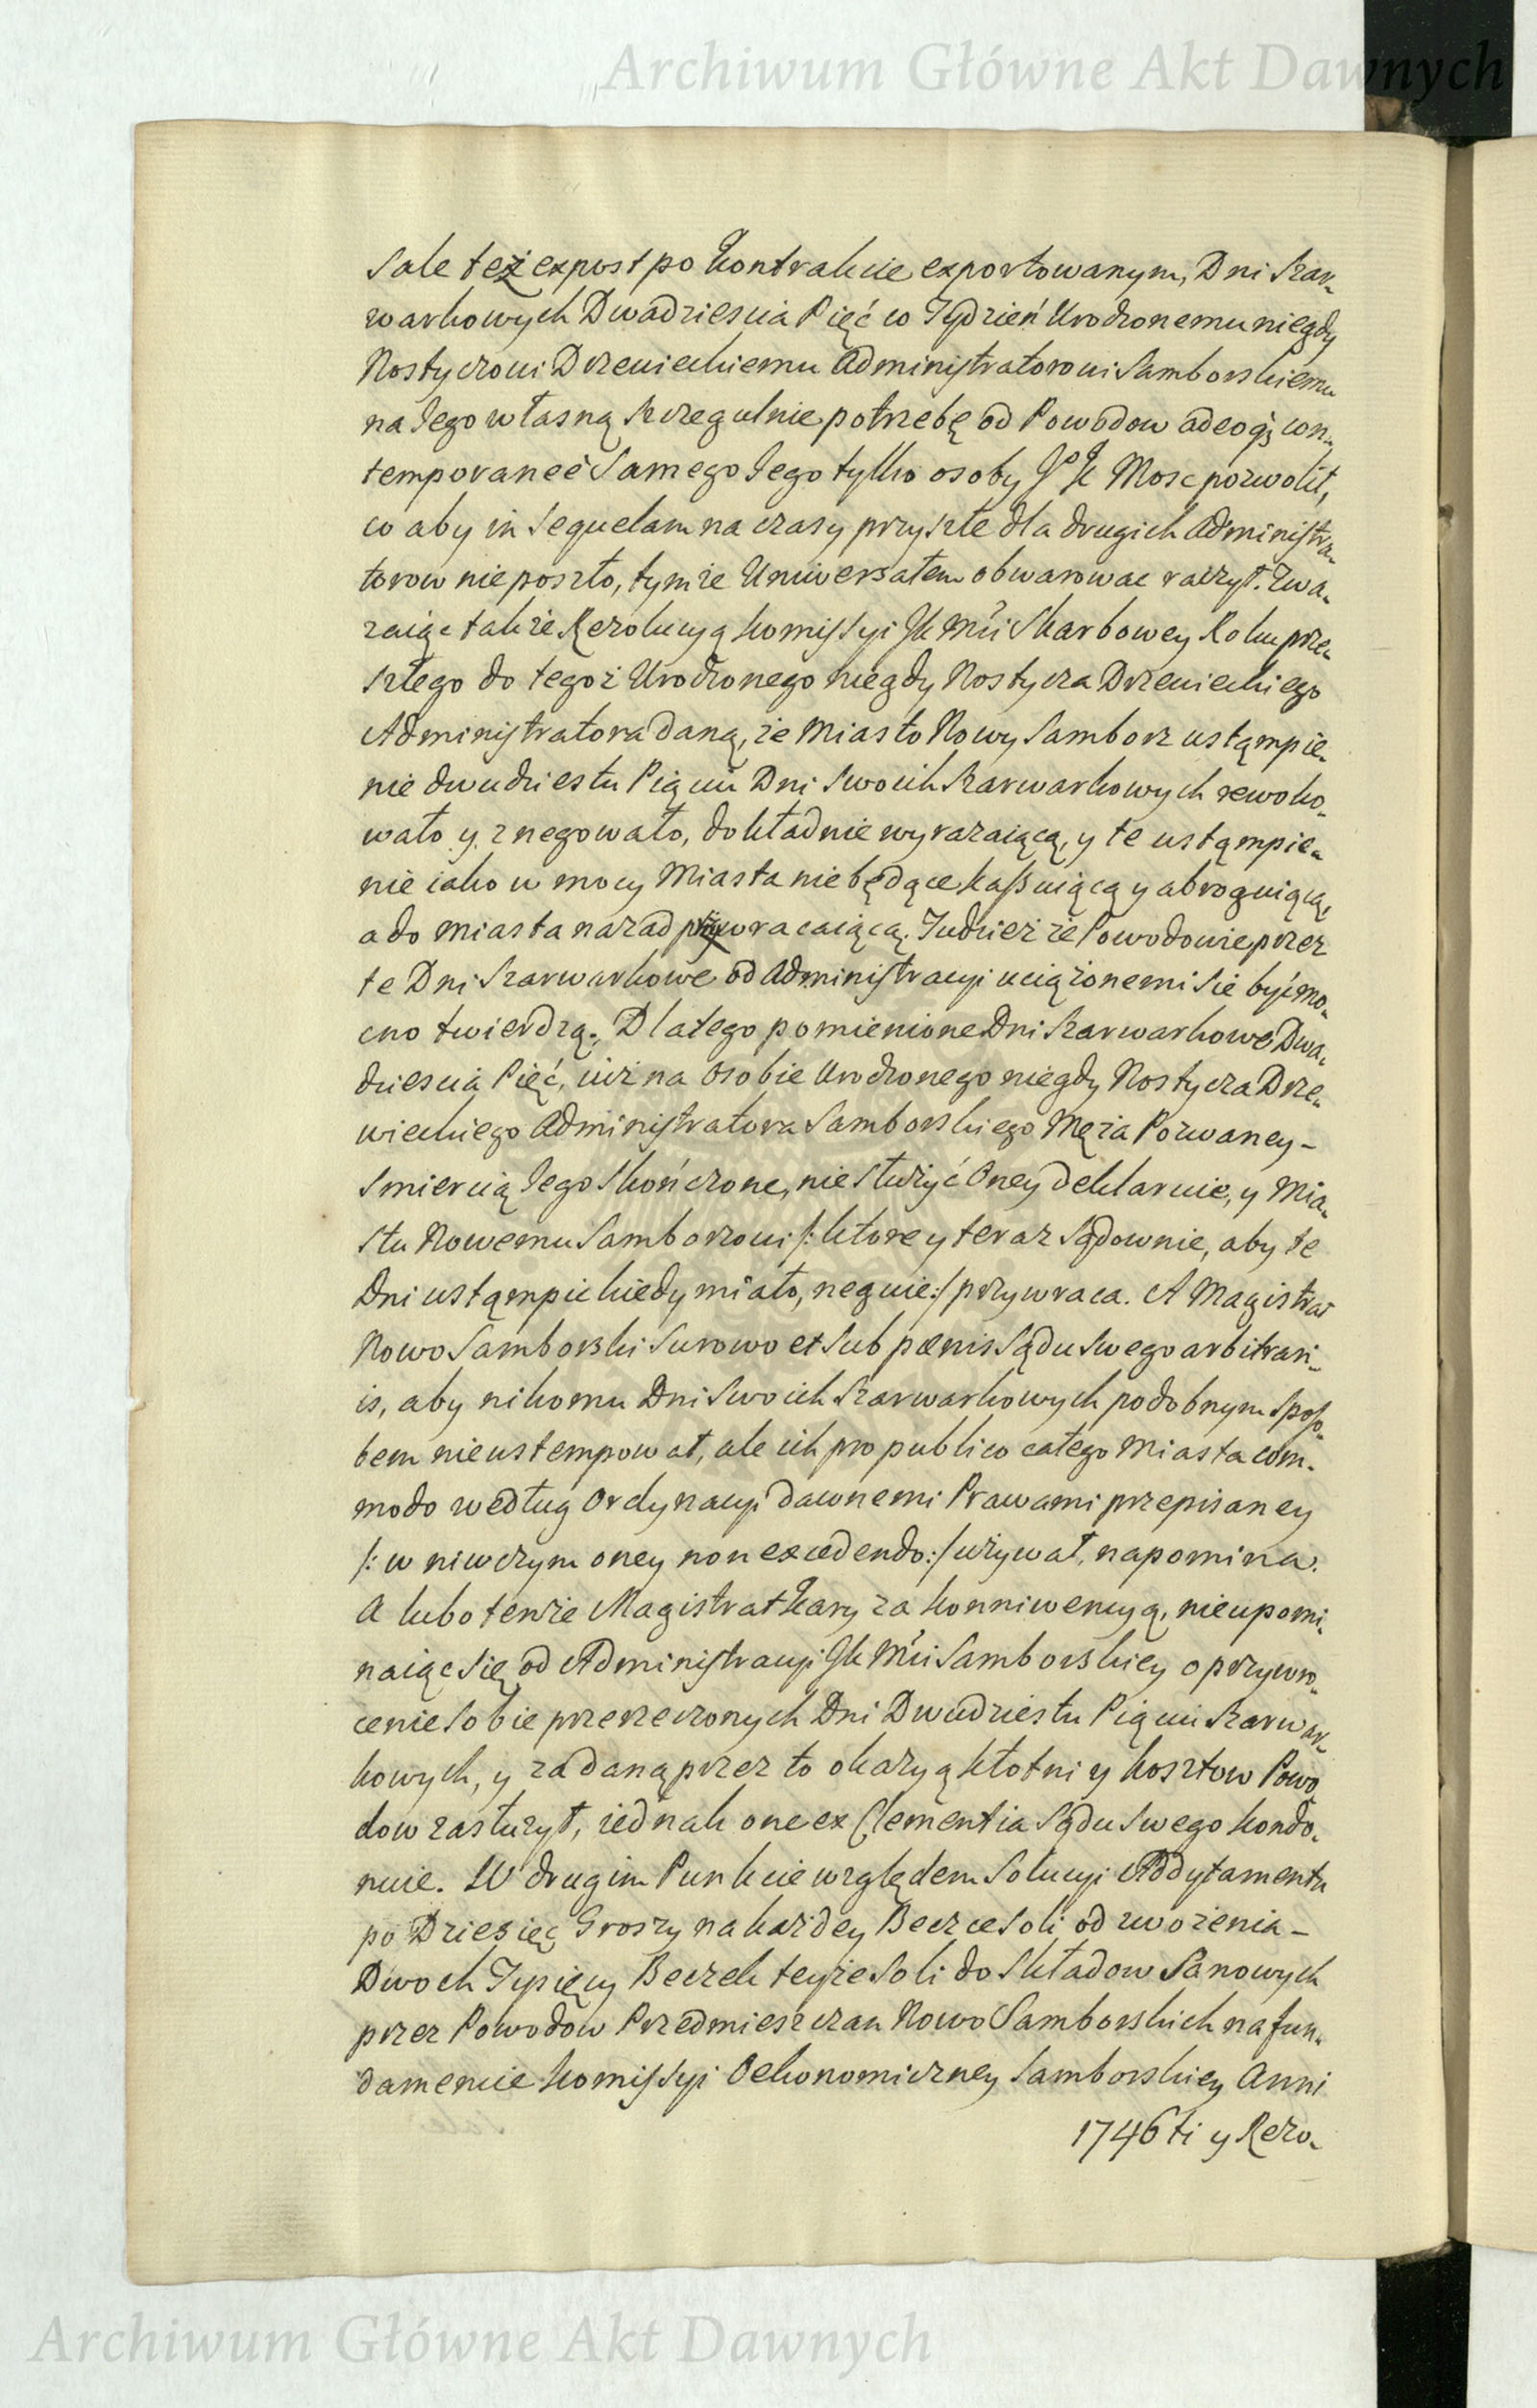 Archiwum Główne Akt Dawnych
sale też expost po Kontrakcie exportowanym, Dni Szar-
warkowych Dwadziescia Pięć w Tydzień Urodzonemu niegdy
Nostyczowi Drzewieckiemu Administratorowi Samborskiemu
na Jego własną szczegulnie potrzebę od Powodow adeoq; con-
temporaneè Samego Jego tylko osoby Jo K Mosc pozwolił,
co aby in sequelam na czasy przyszłe dla drugich Administra-
torow nie poszło, tymże Uniwersałem obwarowac raczył. Zwa-
zaiąc także Rezolucyą Kommissyi JK Mci Skarbowey Roku prze-
szłego do tegoż Urodzonego niegdy Nostycza Drzewieckiego
Administratora daną, że Miasto Nowy Sambor ustąmpie-
nie dwudziestu Piąciu Dni swoich Szarwarkowych rewoko-
wało y znegowało, dokładnie wyrazaiącą, y te ustąmpie-
nie iako w mocy Miasta nie będące kassuiącą y abroguiącą,
a do miasta nazad przywracaiącą. Tudzież że Powodowie przez
te Dni Szarwarkowe od Administracyi uciążonemi się być mo-
cno twierdzą; Dlatego pomienione Dni Szarwarkowe Dwa-
dziescia Pięć, iuż na Osobie Urodzonego niegdy Nostycza Drze-
wieckiego Administratora Samborskiego Męża Pozwaney -
smiercią Jego skończone, nie służyć Oney deklaruie, y Mia-
stu Nowemu Samborowi /: ktore y teraz sądownie, aby te
Dni ustąmpić kiedy miało, neguie :/ przywraca. A Magistrat
Nowo Samborski surowo et sub pœnis Sądu swego arbitrari-
is, aby nikomu Dni swoich Szarwarkowych podobnym sposo-
bem nie ustempował, ale ich pro publico całego Miasta com-
modo według Ordynacyi dawnemi Prawami przepisaney
/: w niwczym oney non excedendo :/ używał, napomina.
A lubo tenże Magistrat Kary za konniwencyą, nie upomi-
naiąc się od Administracyi JK Mci Samborskiey o przywro-
cenie sobie przerzeczonych Dni Dwudziestu Piąciu Szarwar-
kowych, y za daną przez to okazyą kłotni y kosztow Powo-
dow zasłużył, iednak one ex Clementia Sądu swego kondo-
nuie. W drugim Punkcie względem Solucyi Addytamentu
po Dziesięć Groszy na każdey Beczce soli od zwożenia -
Dwoch Tysięcy Beczek teyże soli do Składow Sanowych
przez Powodow Przedmieszczan Nowo Samborskich na fun-
damencie Kommissyi Oekonomiczney Samborskiey Anni
1746ti y Rezo-
Archiwum Główne Akt Dawnych